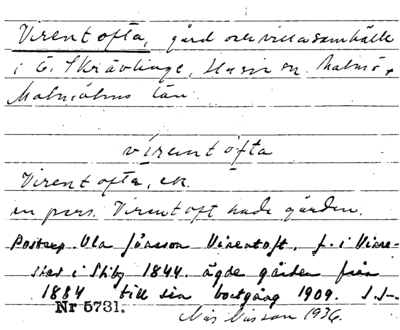 Virentofta, gård och villasamhälle
i Ö. Skrävlinge, Husie sn. Malmö,
Malmöhus län.
virentofta
Virentofta, ek.
en pers. Virentoft hade gården.
Ola Jönsson Virentoft, f. i Virestad
i 1844. ägde gården från
1884 till sin bortgång 1909.
Nr 5731.
Nils Nilsson 1936.